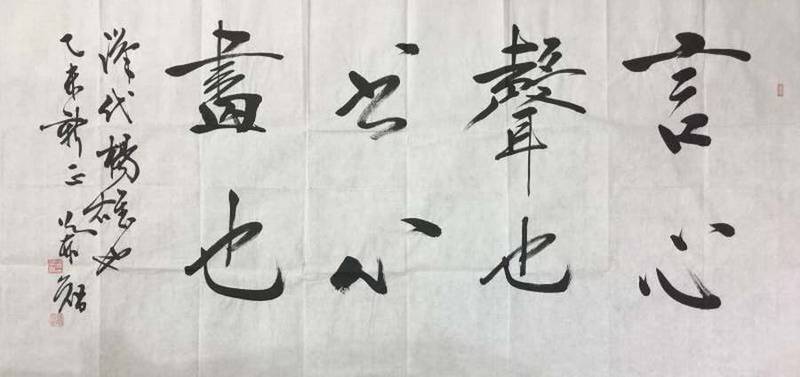 言心
聲也
书心
畫也
漢代楊雄句
乙未新正